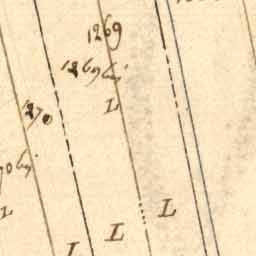 1269
1269 bis
L
1270
L
L
L
L